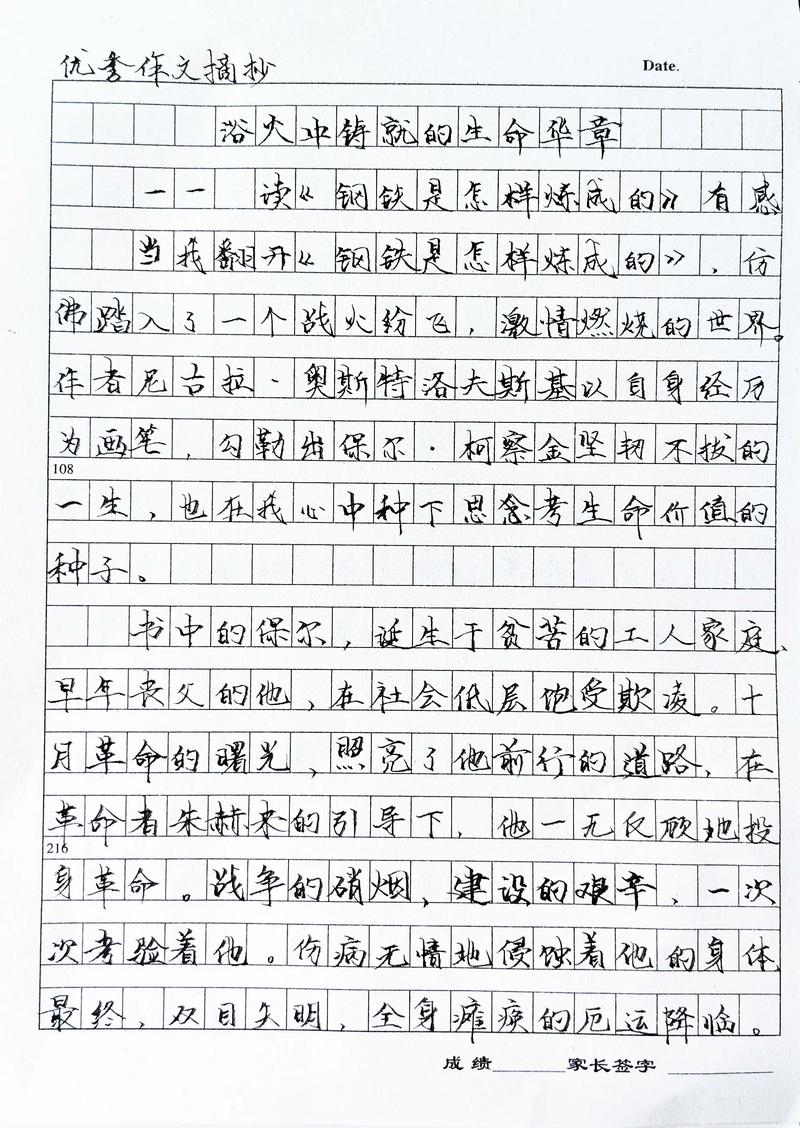 优秀作文摘抄
Date.
浴火冲铸就的生命华章
一一 读《钢铁是怎样炼成的》有感
当我翻开《钢铁是怎样炼成的》,仿
佛踏入了一个战火纷飞,激情燃烧的世界。
作者尼古拉·奥斯特洛夫斯基以自身经历
为画笔,勾勒出保尔·柯察金坚韧不拔的
108
一生,也在我心中种下思念考生命价值的
种子。
书中的保尔,诞生于贫苦的工人家庭、
早年丧父的他,在社会低层饱受欺凌。十
月革命的曙光,照亮了他前行的道路,在
革命者朱赫来的引导下,他一无反顾地投
216
身革命。战争的硝烟,建设的艰辛,一次
次考验着他。伤病无情地侵蚀着他的身体
最终,双目失明,全身瘫痪的厄运降临。
成绩 家长签字